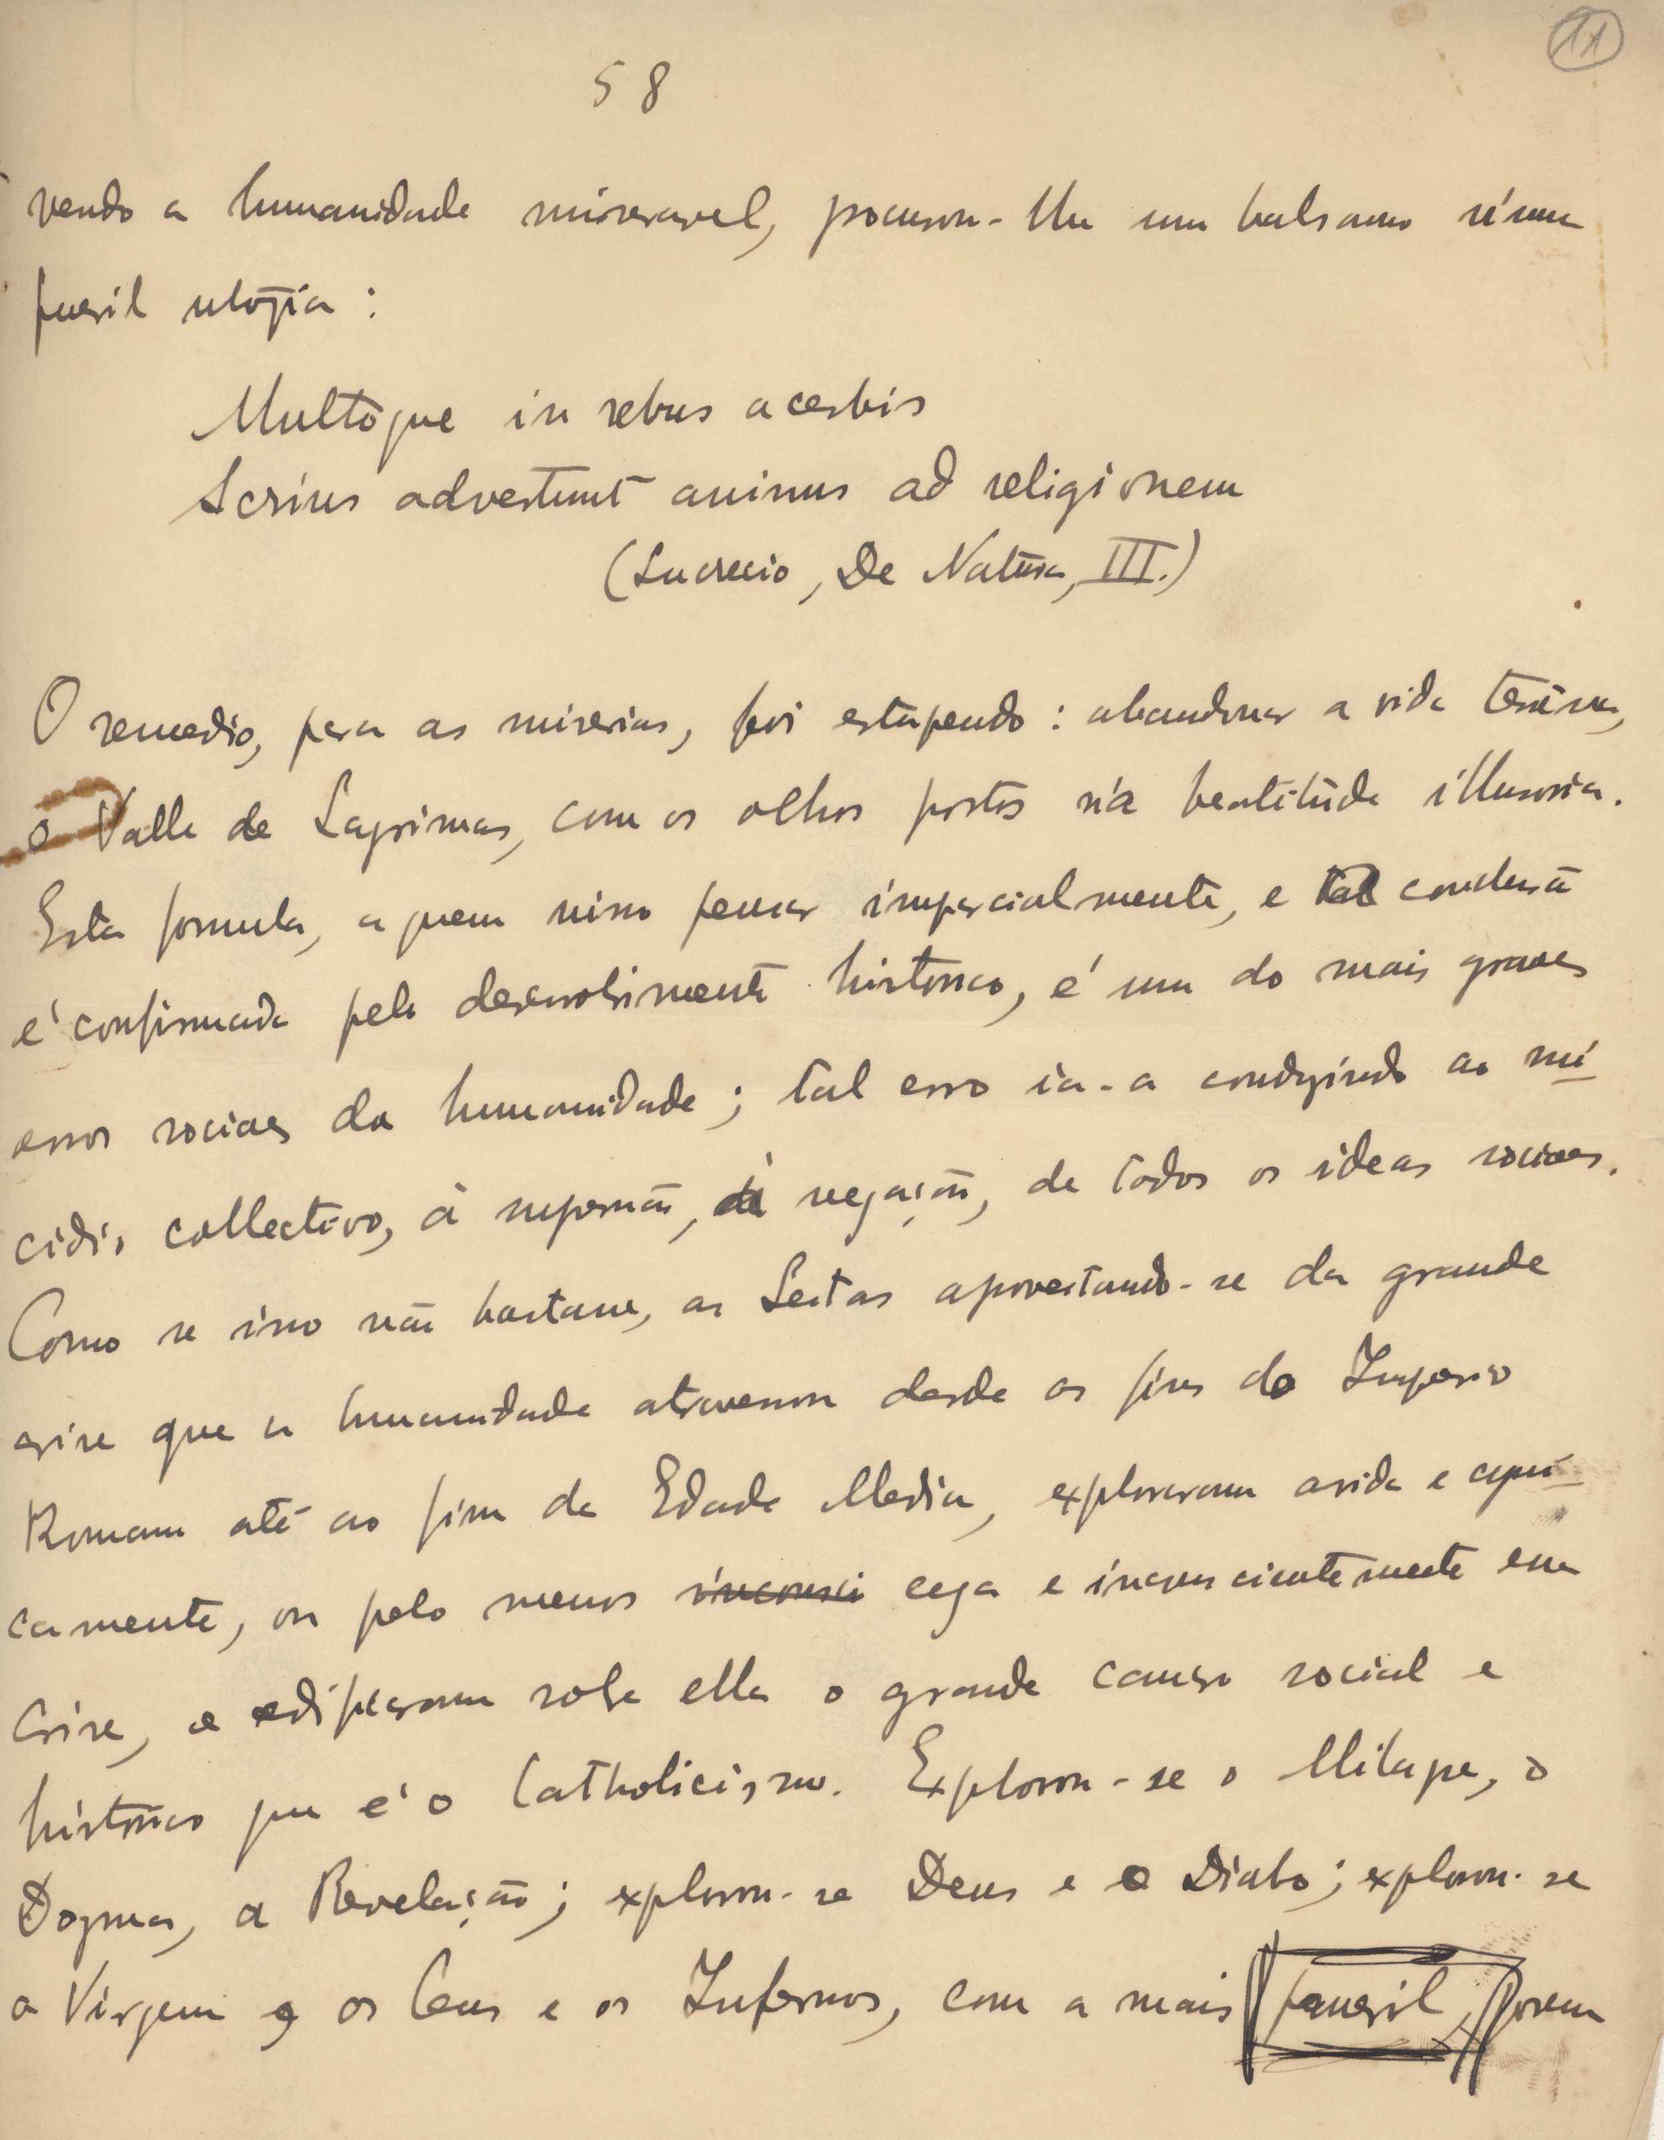 11
58
vendo a humanidade miseravel, procurou-lhe um balsamo n'uma
pueril utopia:
Multoque in rebus acerbis
Acrius advertunt animus ad religionem
(Lucrecio, De Natura, III.)
O remedio, para as miserias, foi estupendo: abandonar a vida terrena,
o Valle de Lagrimas, com os olhos postos n'a beatitude illusoria.
Esta formula, a quem nisso pensar imparcialmente, e tal conclusão
é confirmada pelo desenvolvimento historico, é um do mais graves
erros sociaes da humanidade; tal erro ia-a conduzindo ao sui
cidio collectivo, à supressão, à negação, de todos os ideas sociaes.
Como se isso não bastasse, as Seitas aproveitando-se da grande
crise que a humanidade atravessou desde os fins do Imperio
Romano até ao fim da Edade Media, exploraram avida e cyni
camente, ou pelo menos inconsci cega e inconscientemente essa
crise, e edificaram sobre ella o grande cancro social e
historico que é o Catholicismo. Explorou-se o Milagre, o
Dogma, a Revelação; explorou-se Deus e o Diabo; explorou-se
a Virgem e os Ceus e os Infernos, com a mais pueril, porem